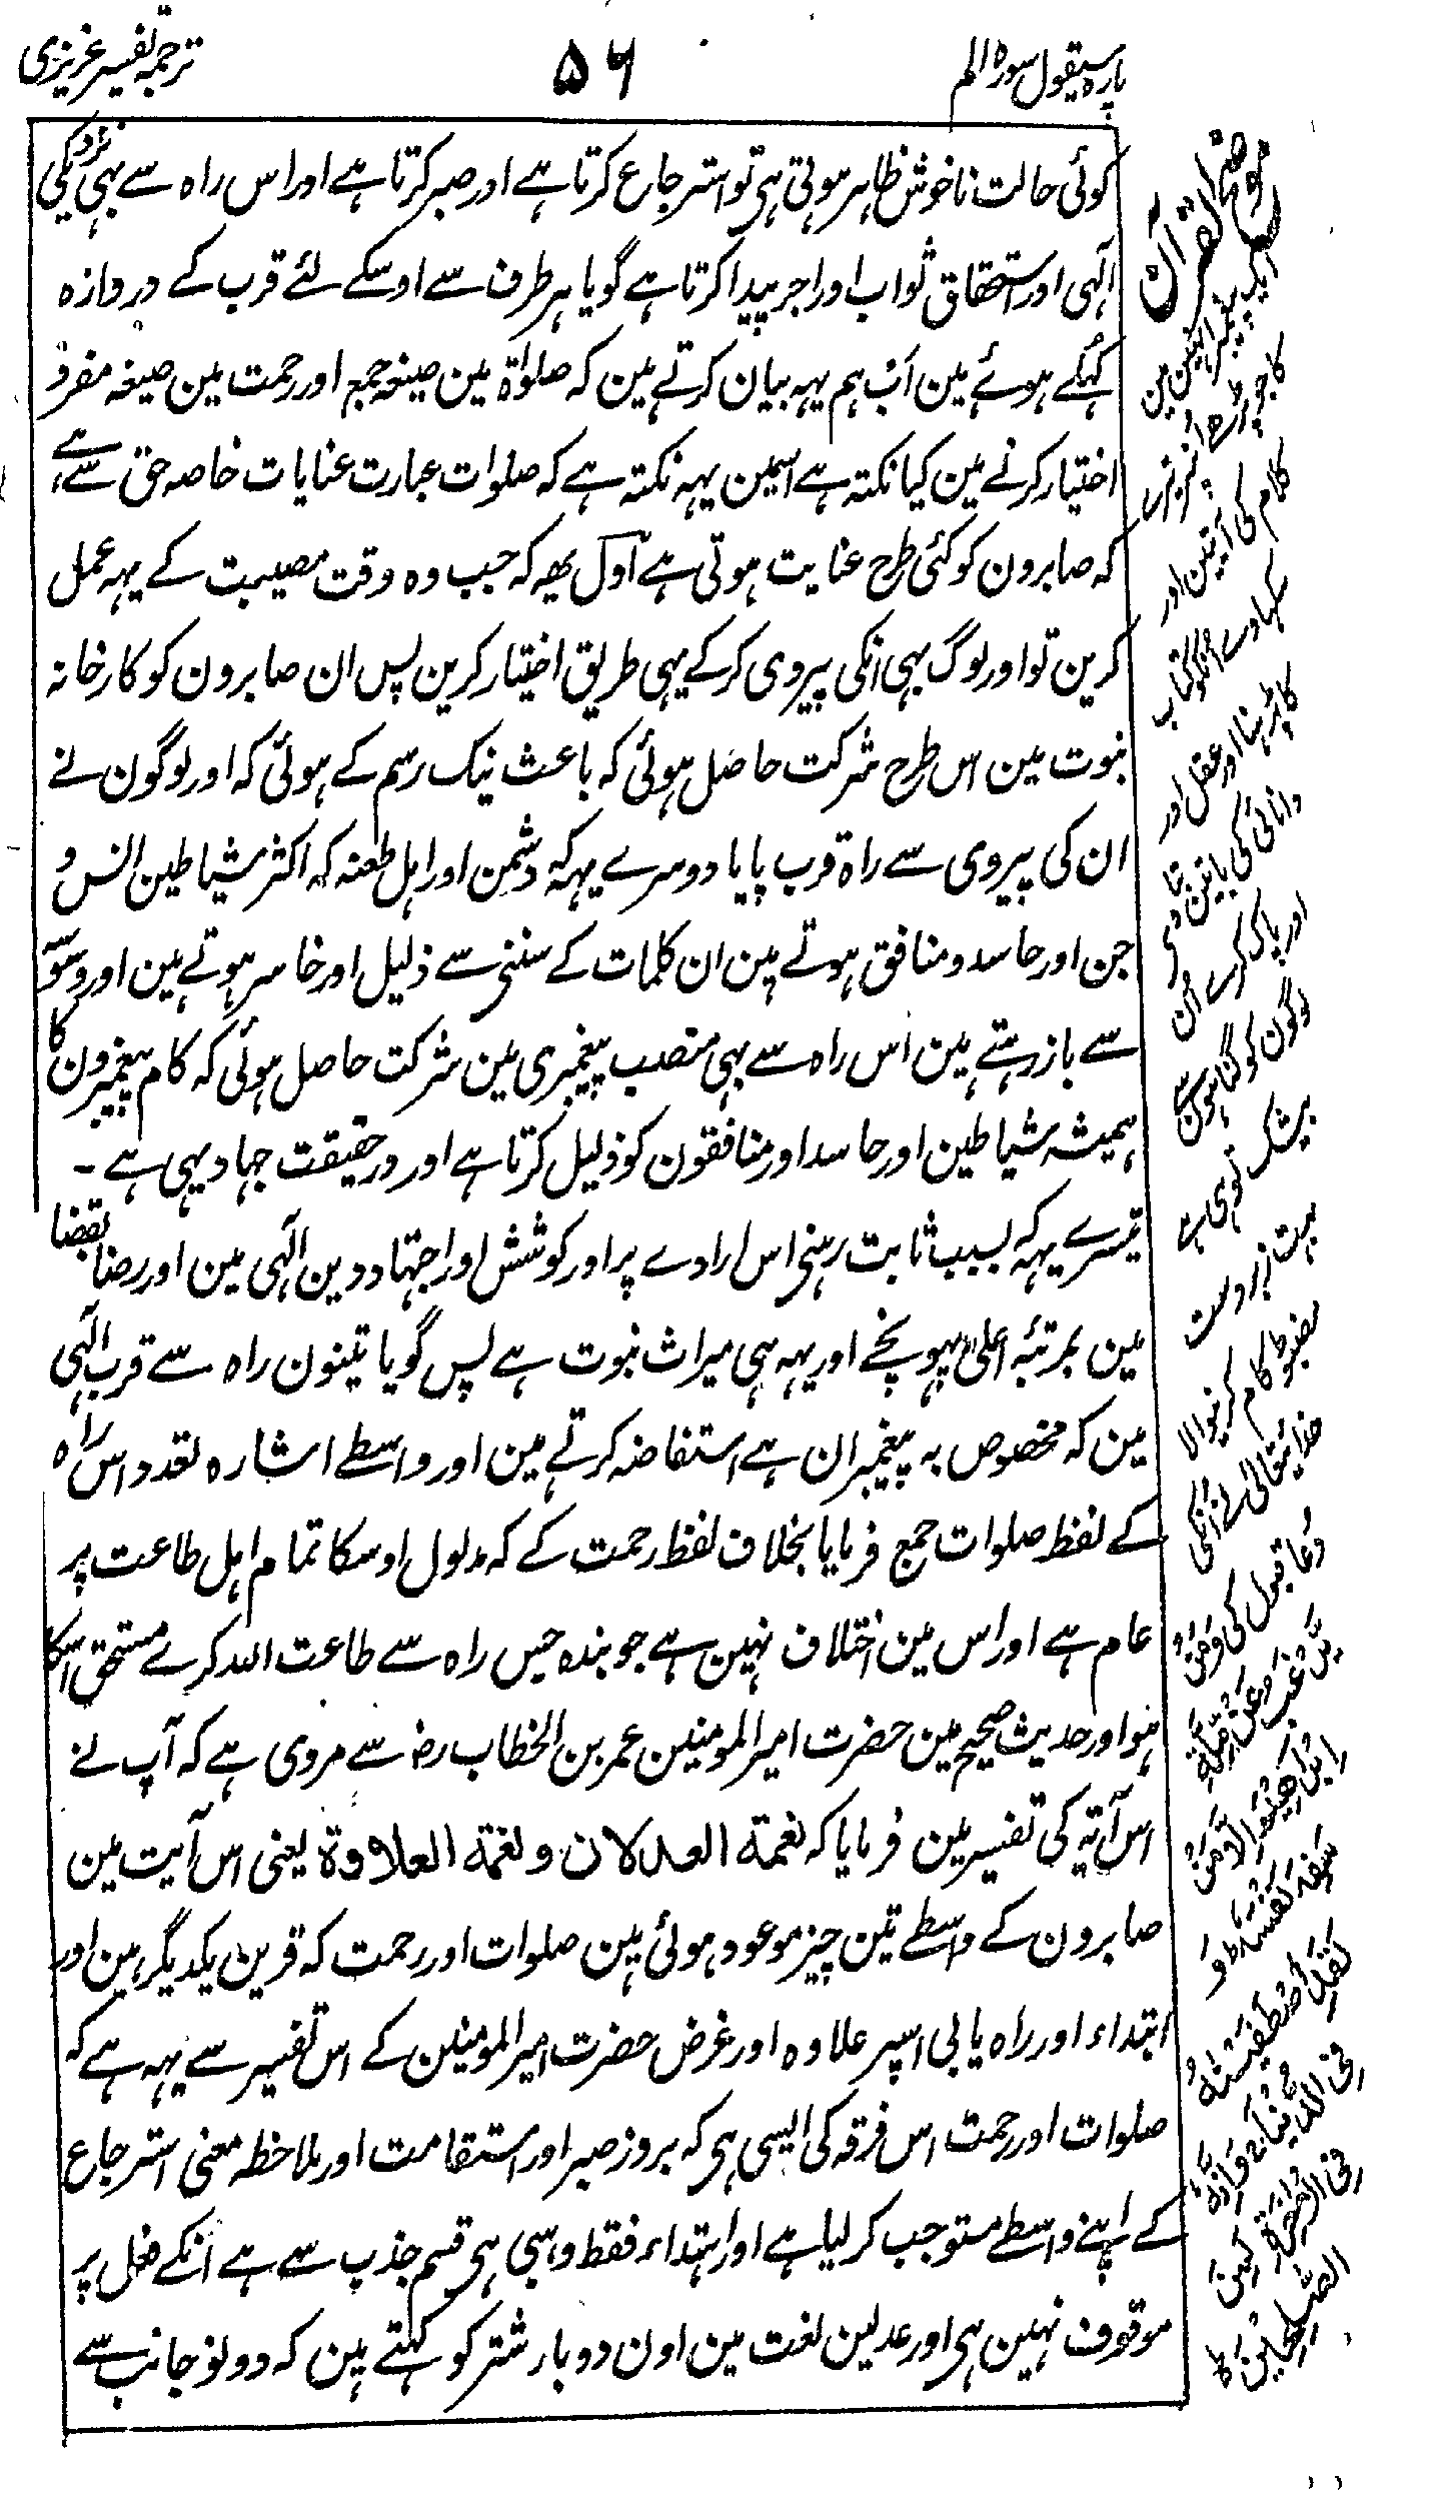 پارہ سیقول سورہ الم
۵۶
ترجمہ تفسیر عزیزی
کوئی حالت ناخوش ظاہر ہوتی ہی تو استرجاع کرتا ہے اور صبر کرتا ہے اور اس راہ سے بہی نزدیکی
آلہی اور استحقاق ثواب اور اجر پیدا کرتا ہے گویا ہر طرف سے اوسکے لئے قرب کے دروازہ
کہلے ہوئے مین اب ہم یہہ بیان کرتے مین کہ صلوٰۃ مین صیغہ جمع اور رحمت مین صیغہ مفرد
اختیار کرنے مین کیا نکتہ ہے اسمین یہہ نکتہ ہے کہ صلوات عبارت عنایات خاصہ حق سے ہے
کہ صابرون کو کئی طرح عنایت ہوتی ہے اول یہہ کہ جب وہ وقت مصیبت کے یہہ عمل
کرین تو اور لوگ بہی انکی پیروی کرکے یہی طریق اختیار کرین پس ان صابرون کو کارخانہ
نبوت مین اس طرح شرکت حاصل ہوئی کہ باعث نیک رسم کے ہوئی کہ اور لوگون نے
ان کی پیروی سے راہ قرب پایا دوسرے یہہ کہ دشمن اور اہل طعنہ کہ اکثر شیاطین انس و
جن اور حاسد و منافق ہوتے ہین ان کلمات کے سننی سے ذلیل اور خاسر ہوتے مین اور وسوسے
سے باز رہتے مین اس راہ سے بہی منصب پیغمبری مین شرکت حاصل ہوئی کہ کام پیغمبرون کا
ہمیشہ شیاطین اور حاسد اور منافقون کو ذلیل کرتا ہے اور درحقیقت جہاد یہی ہے ۔
تیسرے یہہ کہ بسبب ثابت رہنی اس ارادے پر اور کوشش اور اجتہاد دین الٓہی مین اور رضا بقضا
مین بمرتبۂ اعلیٰ پہونچے اور یہہ ہی میراث نبوت ہے پس گویا تینون راہ سے قرب الٓہی
مین کہ مخصوص بہ پیغمبران ہے استفاضہ کرتے مین اور واسطے اشارہ تعدد اس راہ
کے لفظ صلوات جمع فرمایا بخلاف لفظ رحمت کے کہ مدلول اوسکا تمام اہل طاعت پر
عام ہے اور اس مین اختلاف نہین ہے جو بندہ جس راہ سے طاعت اللہ کرے مستحق اسکا
ہو اور حدیث صحیح مین حضرت امیر المومنین عمر بن الخطاب رض سے مروی ہے کہ آپ نے
اس آیۃ کی تفسیر مین فرمایا کہ نعمۃ العدلان و نعمۃ العلاوۃ یعنی اس آیت مین
صابرون کے واسطے تین چیز موعود ہوئی ہین صلوات اور رحمت کہ قرین یکدیگر مین اور
اہتداء اور راہ یابی اسپر علاوہ اور غرض حضرت امیر المومنین کے اس تفسیر سے یہہ ہے کہ
صلوات اور رحمت اس فرقہ کی ایسی ہی کہ بروز صبر اور استقامت اور ملاحظہ معنی استرجاع
کے اپنے واسطے مستوجب کر لیا ہے اور اہتداء فقط وہبی ہی قسم جذب سے ہے انکے فعل پر
موقوف نہین ہی اور عدلین لغت مین اون دو بار شتر کو کہتے ہین کہ دونو جانب سے
موضح القرآن
ایک پیغمبر انہین مین
کا جو پڑھے انپر تیرے
کلام کی آیتین اور
سکہاوے انکو کتاب
کا پڑہنا اور عقل اور
دانائی کی باتین
اور پاک کرے ان
لوگون کو گناہون سے
بیشک تو ہی ہے
بہت زبردست
مضبوط کام کرنیوالا
خدایتعالی نے انکی
دعا قبول کی
یَّرْغَبُ عَنْ مِّلَّۃِ
اِبْرَاھِیْمَ اِلَّا مَنْ
سَفِہَ نَفْسَہٗ وَ
لَقَدِ اصْطَفَیْنٰہُ
فِی الدُّنْیَا وَاِنَّہٗ
فِی الْاٰخِرَۃِ لَمِنَ
الصّٰلِحِیْنَ